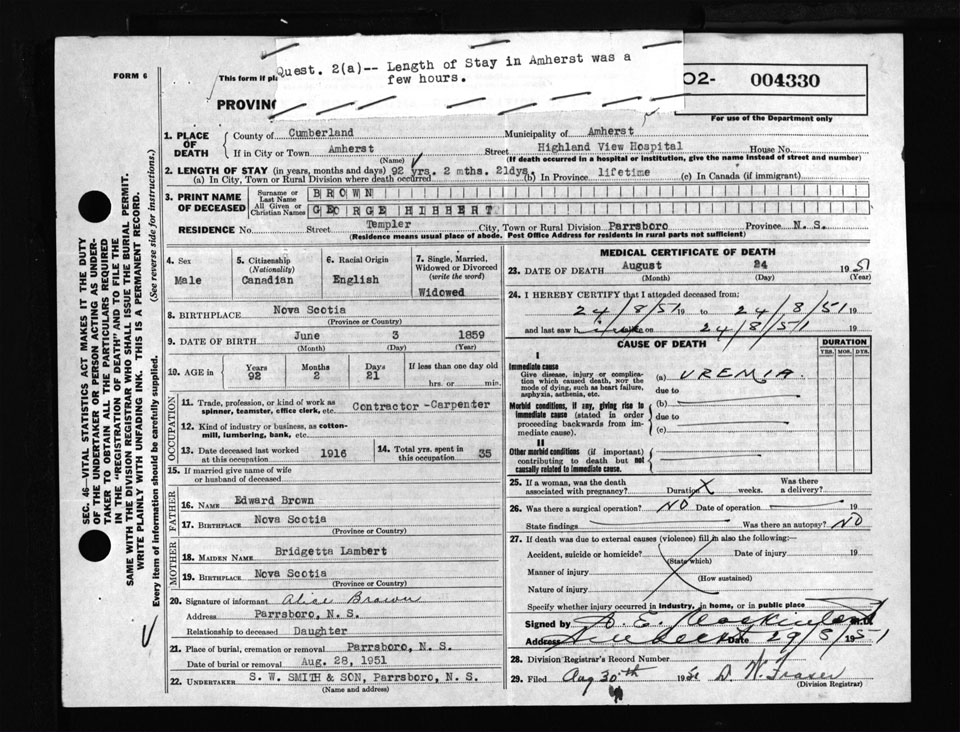 Quest. 2(a)-- Length of Stay in Amherst was a
few hours.
FORM 6
This form if pl
02- 004330
PROVINC
For use of the Department only
1. PLACE OF DEATH
County of Cumberland Municipality of Amherst
If in City or Town Amherst Street Highland View Hospital House No.
(Name) (If death occurred in a hospital or institution, give the name instead of street and number)
2. LENGTH OF STAY (in years, months and days) 92 yrs. 2 mths. 21dys. lifetime
(a) In City, Town or Rural Division where death occurred (b) In Province (c) In Canada (if immigrant)
3. PRINT NAME OF DECEASED
Surname or Last Name BROWN
All Given or Christian Names GEORGE HIBBERT
RESIDENCE No. Street Templer City, Town or Rural Division Parrsboro Province N. S.
(Residence means usual place of abode. Post Office Address for residents in rural parts not sufficient)
4. Sex Male
5. Citizenship (Nationality) Canadian
6. Racial Origin English
7. Single, Married, Widowed or Divorced (write the word) Widowed
8. BIRTHPLACE Nova Scotia
(Province or Country)
9. DATE OF BIRTH June 3 1859
(Month) (Day) (Year)
10. AGE in Years 92 Months 2 Days 21 If less than one day old
hrs. or min.
OCCUPATION
11. Trade, profession, or kind of work as spinner, teamster, office clerk, etc. Contractor -Carpenter
12. Kind of industry or business, as cotton-mill, lumbering, bank, etc.
13. Date deceased last worked at this occupation 1916
14. Total yrs. spent in this occupation 35
15. If married give name of wife or husband of deceased
FATHER
16. NAME Edward Brown
17. BIRTHPLACE Nova Scotia
(Province or Country)
MOTHER
18. MAIDEN NAME Bridgetta Lambert
19. BIRTHPLACE Nova Scotia
(Province or Country)
20. Signature of informant Alice Brown
Address Parrsboro, N. S.
Relationship to deceased Daughter
21. Place of burial, cremation or removal Parrsboro, N. S.
Date of burial or removal Aug. 28, 1951
22. UNDERTAKER S. W. SMITH & SON, Parrsboro, N. S.
(Name and address)
MEDICAL CERTIFICATE OF DEATH
23. DATE OF DEATH August 24 1951
(Month) (Day) (Year)
24. I HEREBY CERTIFY that I attended deceased from:
24/8/51 19 to 24/8/51 19
and last saw h on 24/8/51 19
CAUSE OF DEATH
DURATION
YRS. MOS. DYS.
I
Immediate cause
Give disease, injury or complication which caused death, not the mode of dying, such as heart failure, asphyxia, asthenia, etc.
(a) UREMIA
due to
Morbid conditions, if any, giving rise to immediate cause (stated in order proceeding backwards from immediate cause).
(b)
due to
(c)
II
Other morbid conditions (if important) contributing to death but not causally related to immediate cause.
25. If a woman, was the death associated with pregnancy? Duration X weeks. Was there a delivery?
26. Was there a surgical operation? NO Date of operation 19
State findings Was there an autopsy? NO
27. If death was due to external causes (violence) fill in also the following:—
Accident, suicide or homicide? Date of injury 19
(State which)
Manner of injury
(How sustained)
Nature of injury
Specify whether injury occurred in industry, in home, or in public place
Signed by M.D.
Address Date 29/8/1951
28. Division Registrar's Record Number
29. Filed Aug 30th 1951 D. W. Fraser
(Division Registrar)
SEC. 46—VITAL STATISTICS ACT MAKES IT THE DUTY
OF THE UNDERTAKER OR PERSON ACTING AS UNDER-
TAKER TO OBTAIN ALL THE PARTICULARS REQUIRED
IN THE "REGISTRATION OF DEATH" AND TO FILE THE
SAME WITH THE DIVISION REGISTRAR WHO SHALL ISSUE THE BURIAL PERMIT.
WRITE PLAINLY WITH UNFADING INK. THIS IS A PERMANENT RECORD.
Every item of information should be carefully supplied. (See reverse side for instructions.)